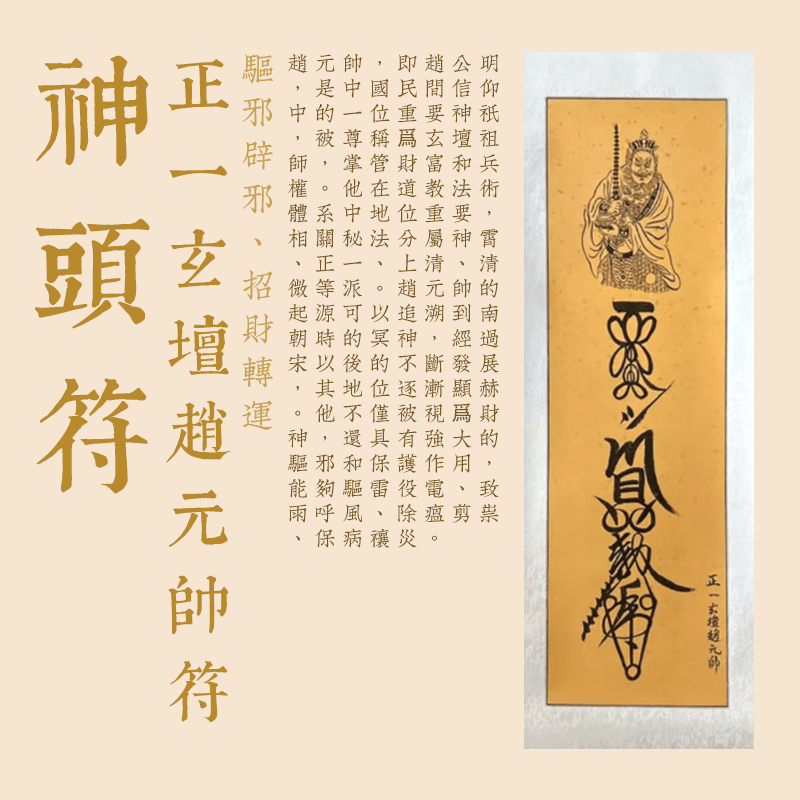 神頭符
正一玄壇趙元帥符
驅邪辟邪、招財轉運
趙元帥，即趙公明
，是中國民間信仰
中的一位重要神祇
，被尊稱爲玄壇祖
師，掌管財富和兵
權。他在道教法術
體系中地位重要，
相關秘法分屬神霄
、正一、上清、清
微等派。趙元帥的
起源可以追溯到南
朝時的冥神，經過
宋以後的不斷發展
，其地位逐漸顯赫
。他不僅被視爲財
神，還具有強大的
驅邪和保護作用，
能夠驅雷役電、致
雨呼風、除瘟剪祟
、保病禳災。
正一玄壇趙元帥